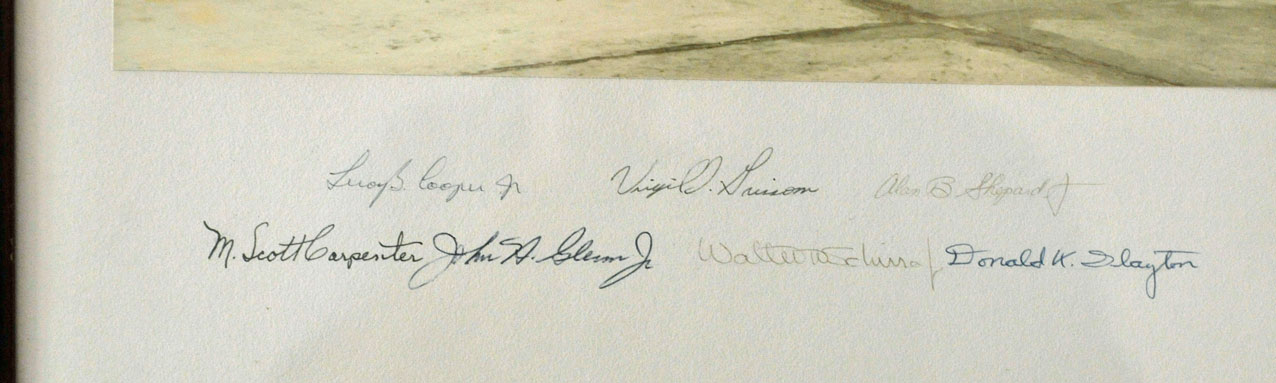 Leroy G. Cooper Jr Virgil I. Grissom Alan B. Shepard Jr
M. Scott Carpenter John H. Glenn Jr Walter M Schirra Jr Donald K. Slayton